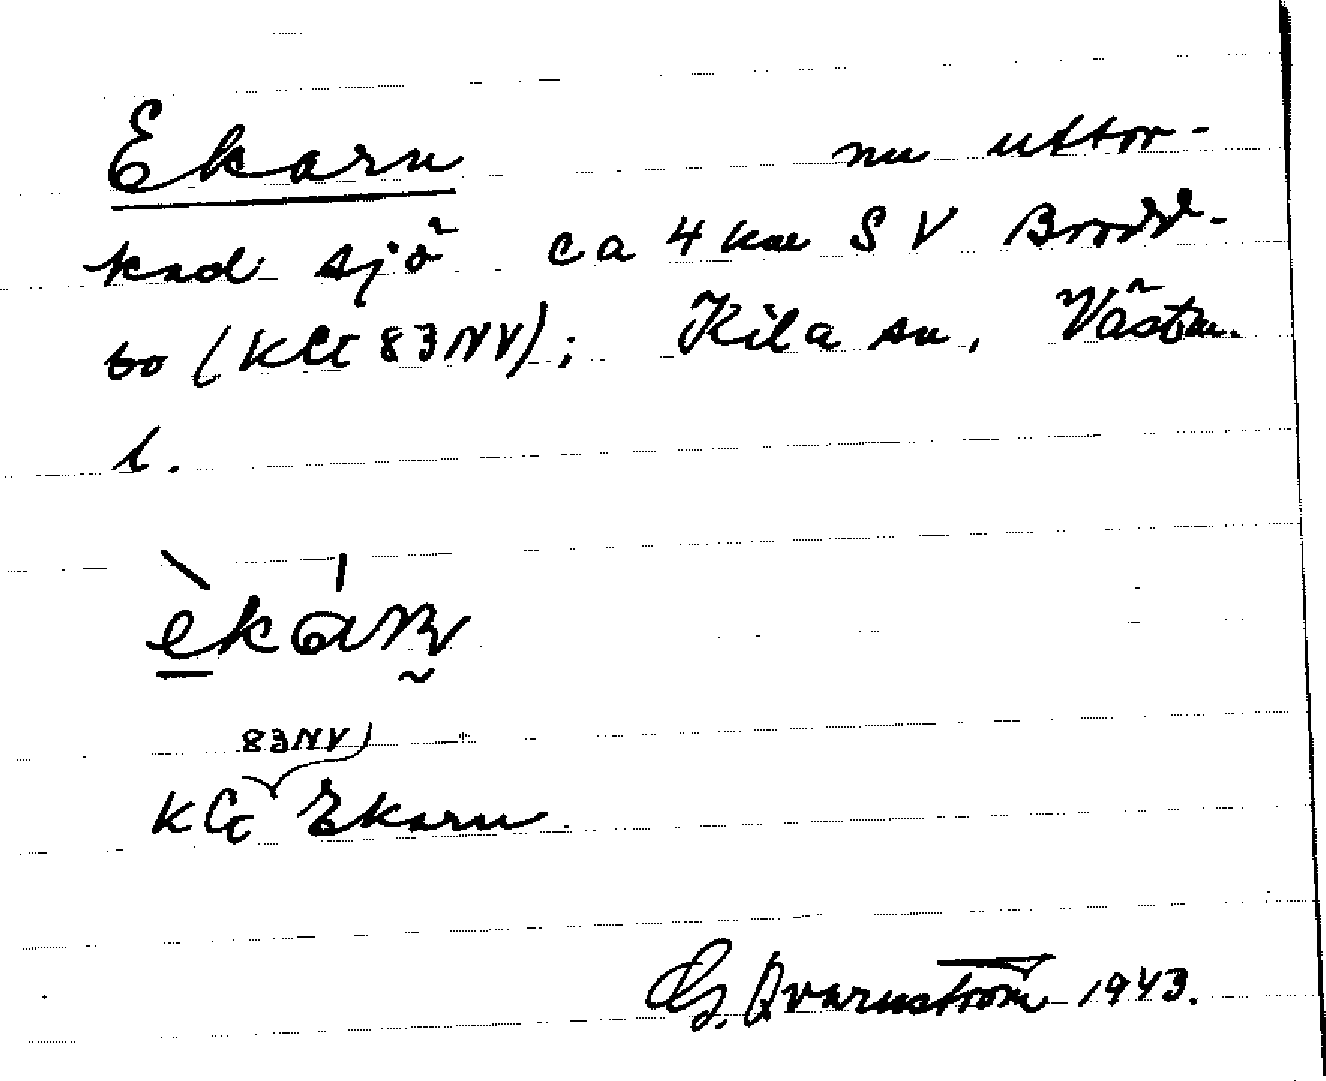 Ekarn nu uttor-
kad sjö ca 4 km SV Brodd-
bo (KCC 83NV); Kila sn, Västm.
l.
èkáɷn̥
83NV)
KCC Ekarn.
G. Qvarnström 1943.